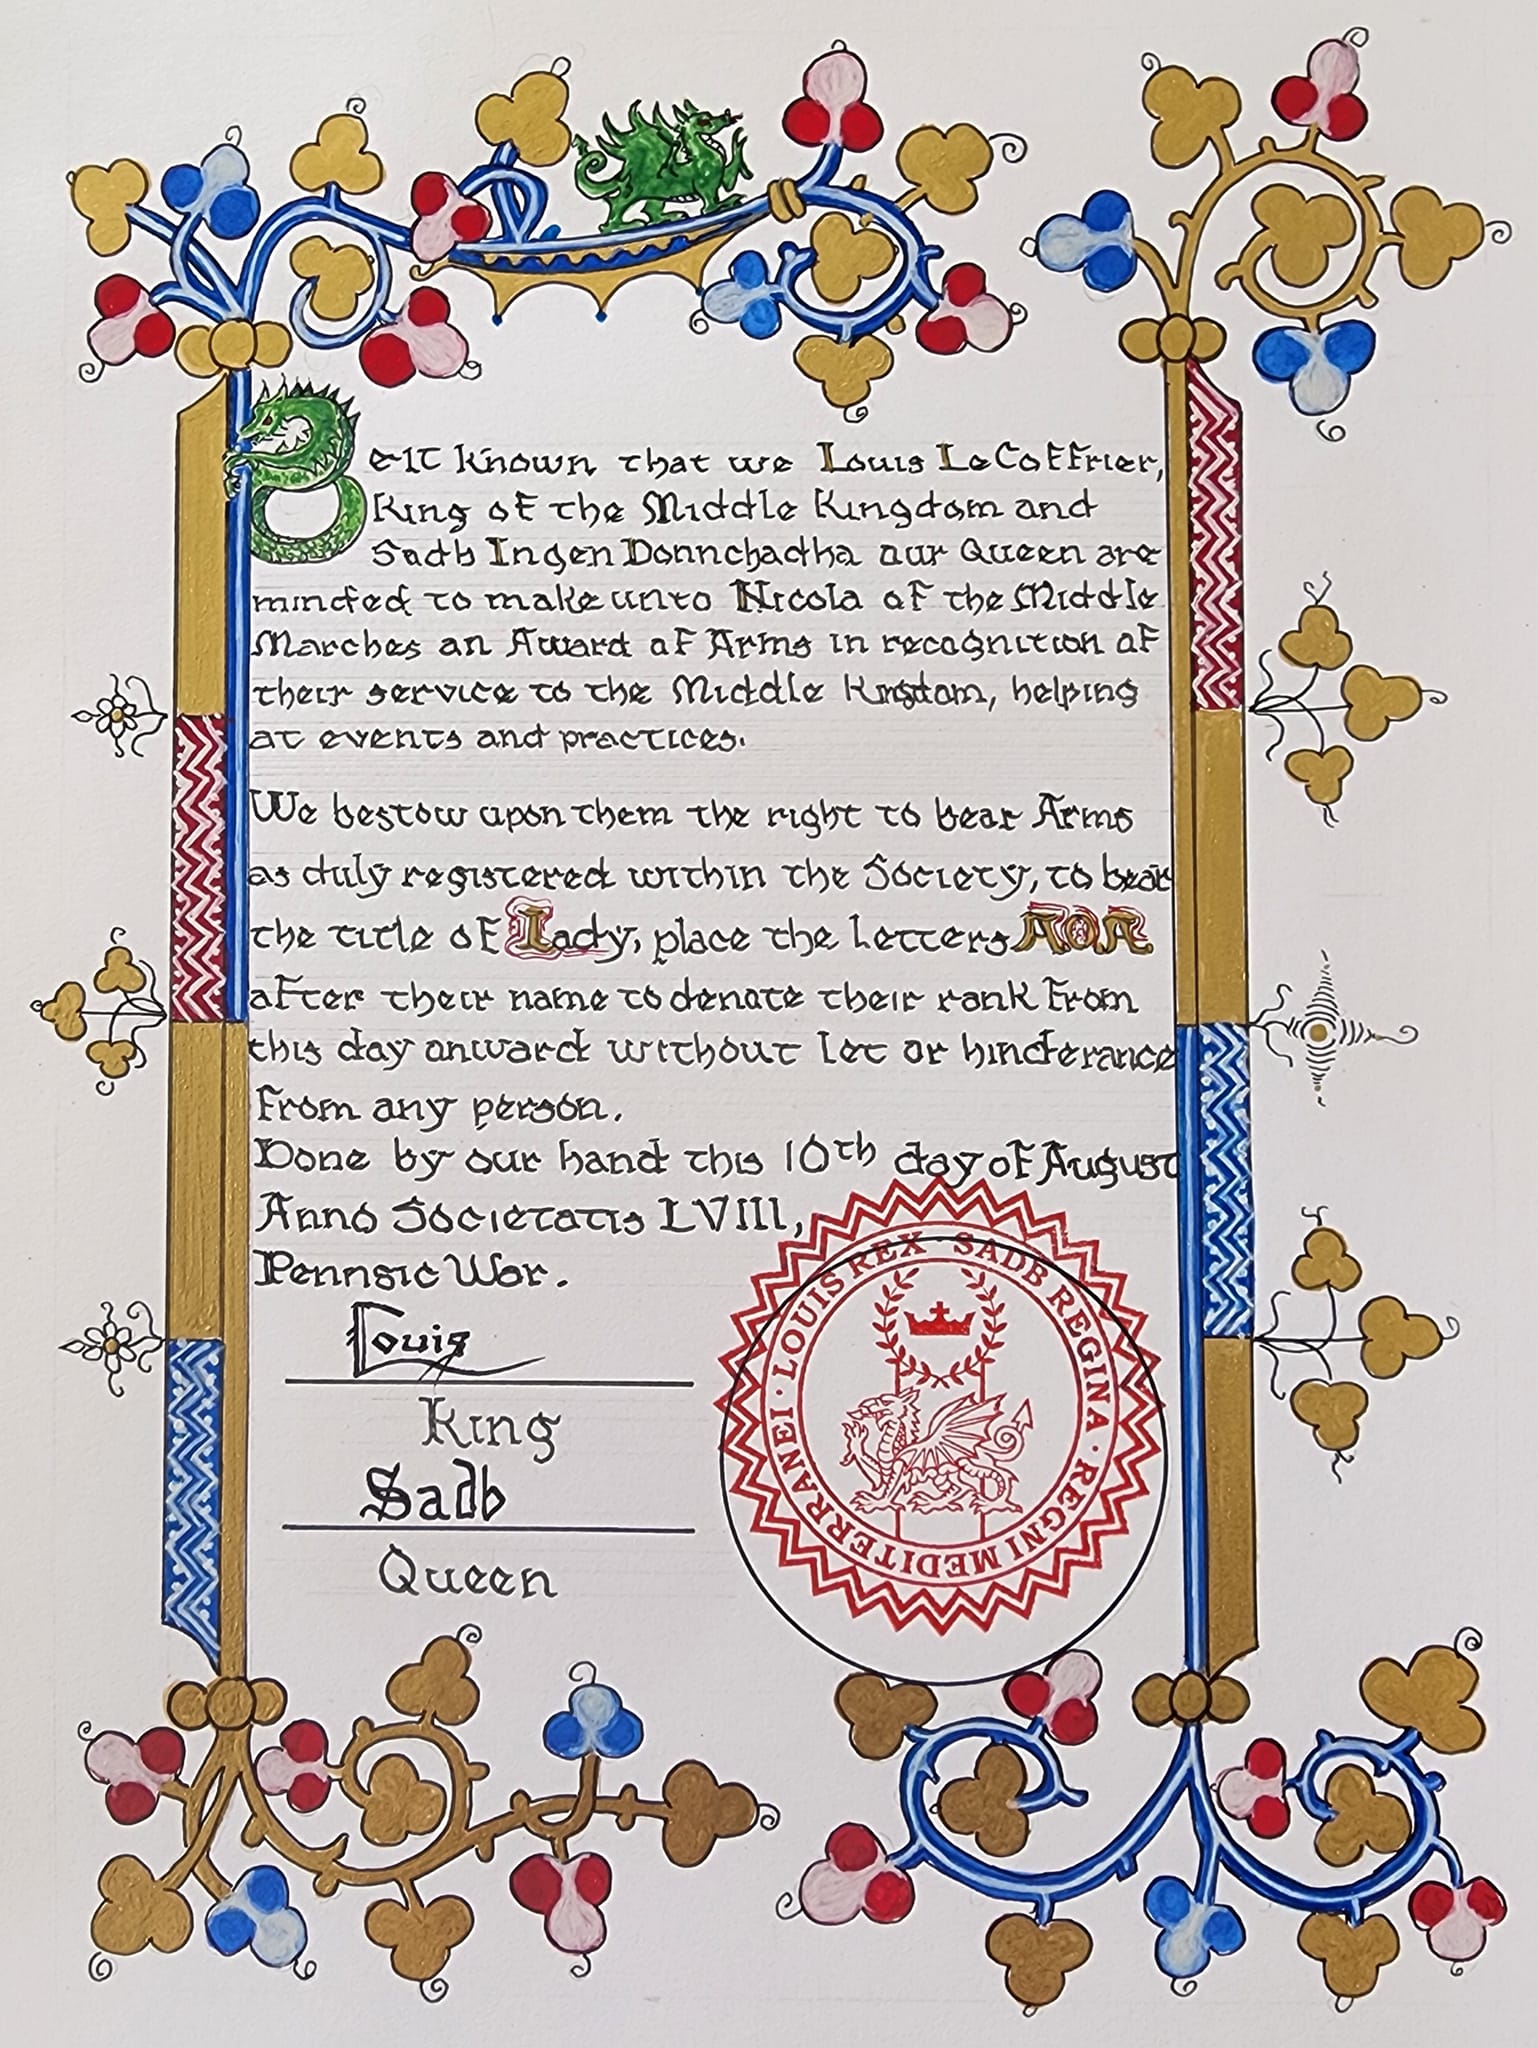 Be it Known that we Louis LeCoffrier,
King of the Middle Kingdom and
Sadb Ingen Donnchadha our Queen are
minded to make unto Nicola of the Middle
Marches an Award of Arms in recognition of
their service to the Middle Kingdom, helping
at events and practices.
We bestow upon them the right to bear Arms
as duly registered within the Society, to bear
the title of Lady, place the letters AOA
after their name to denote their rank from
this day onward without let or hinderance
from any person.
Done by our hand this 10th day of August
Anno Societatis LVIII,
Pennsic War.
Louis
King
Sadb
Queen
LOUIS REX · SADB REGINA · REGNI MEDITERRANEI ·